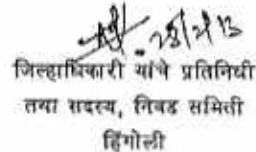 28/2/13
जिल्हाधिकारी यांचे प्रतिनिधी
तथा सदस्य, निवड समिती
हिंगोली